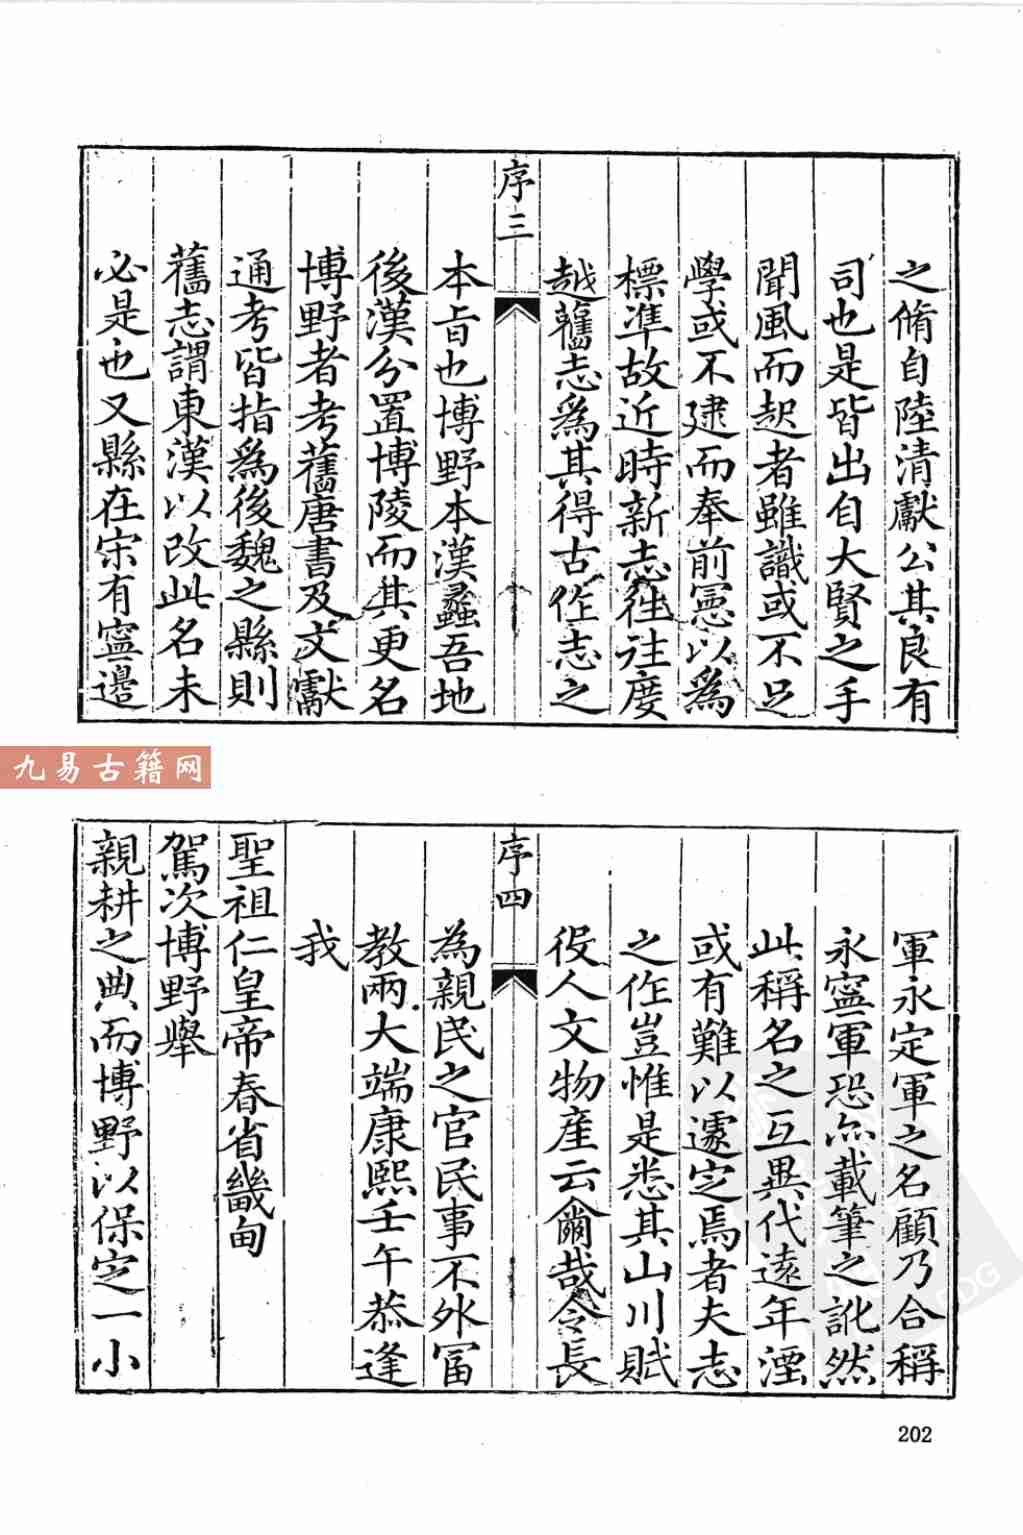 之脩自陸清獻公其良有
司也是皆出自大賢之手
聞風而起者雖識或不足
學或不建而奉前憲以爲
標準故近時新志往往度
越舊志爲其得古作志之
序三
本旨也博野本漢蠡吾地
後漢分置博陵而其更名
博野者考舊唐書及文獻
通考皆指爲後魏之縣則
舊志謂東漢以改此名未
必是也又縣在宋有寧邊
九易古籍网
軍永定軍之名顧乃合稱
永寧軍恐亦載筆之訛然
此稱名之互異代遠年湮
或有難以遽定焉者夫志
之作豈惟是悉其山川賦
役人文物產云爾哉令長
序四
為親民之官民事不外富
教兩大端康熙壬午恭逢
我
聖祖仁皇帝春省畿甸
駕次博野舉
親耕之典而博野以保定一小
202